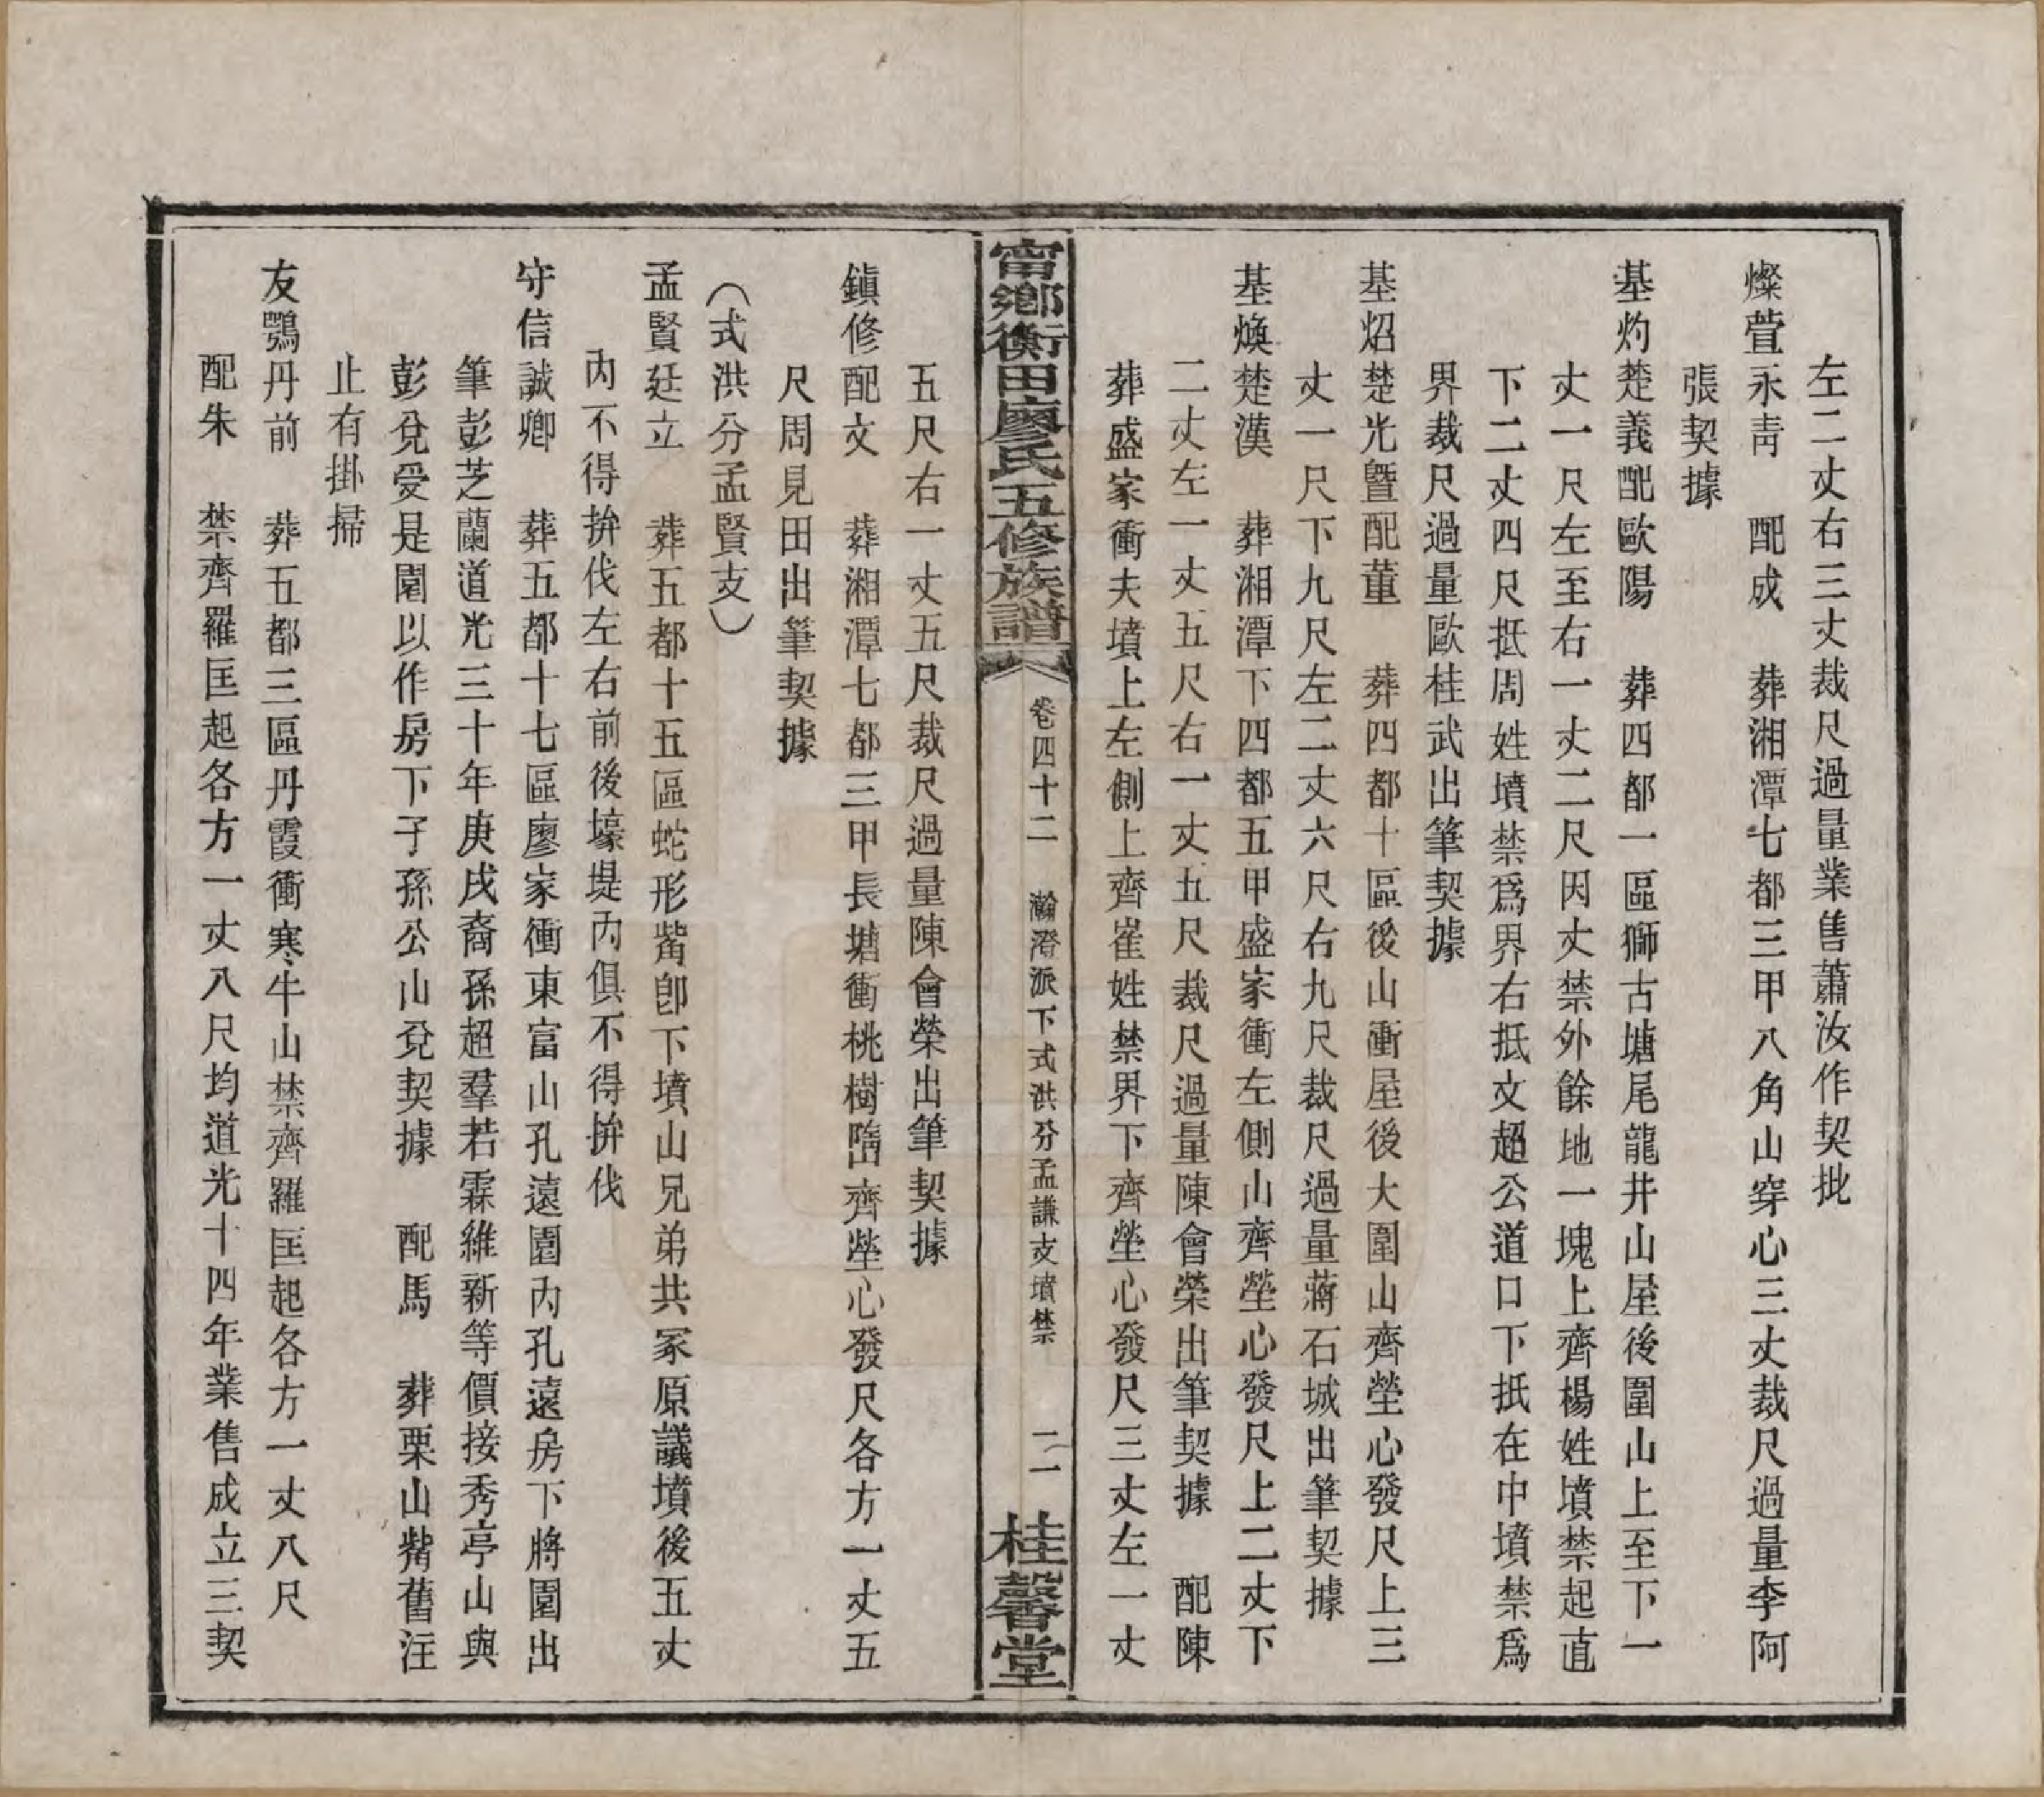 左二丈右三丈裁尺過量業售蕭汝作契批
燦萱永靑　配成　葬湘潭七都三甲八角山穿心三丈裁尺過量李阿
張契據
基灼楚義配歐陽　葬四都一區獅古塘尾龍井山屋後圍山上至下一
丈一尺左至右一丈二尺因丈禁外餘地一塊上齊楊姓墳禁起直
下二丈四尺抵周姓墳禁爲界右抵文超公道口下抵在中墳禁爲
界裁尺過量歐桂武出筆契據
基炤楚光曁配董　葬四都十區後山衝屋後大圍山齊塋心發尺上三
丈一尺下九尺左二丈六尺右九尺裁尺過量蔣石城出筆契據
基煥楚漢　葬湘潭下四都五甲盛家衝左側山齊塋心發尺上二丈下
二丈左一丈五尺右一丈五尺裁尺過量陳會榮出筆契據　配陳
葬盛家衝夫墳上左側上齊崔姓禁界下齊塋心發尺三丈左一丈
甯鄉衡田廖氏五修族譜　卷四十二　瀚澄派下式洪分孟謙支墳禁　二一　桂馨堂
五尺右一丈五尺裁尺過量陳會榮出筆契據
鎮修配文　葬湘潭七都三甲長塘衝桃樹嶞齊塋心發尺各方一丈五
尺周見田出筆契據
（式洪分孟賢支）
孟賢廷立　葬五都十五區蛇形觜卽下墳山兄弟共冢原議墳後五丈
內不得拚伐左右前後壕堤內俱不得拚伐
守信誠卿　葬五都十七區廖家衝東富山孔遠園內孔遠房下將園出
筆彭芝蘭道光三十年庚戌裔孫超羣若霖維新等價接秀亭山與
彭兌受是園以作房下子孫公山兌契據　配馬　葬栗山觜舊注
止有掛掃
友鶚丹前　葬五都三區丹霞衝寒牛山禁齊羅匡起各方一丈八尺
配朱　禁齊羅匡起各方一丈八尺均道光十四年業售成立三契